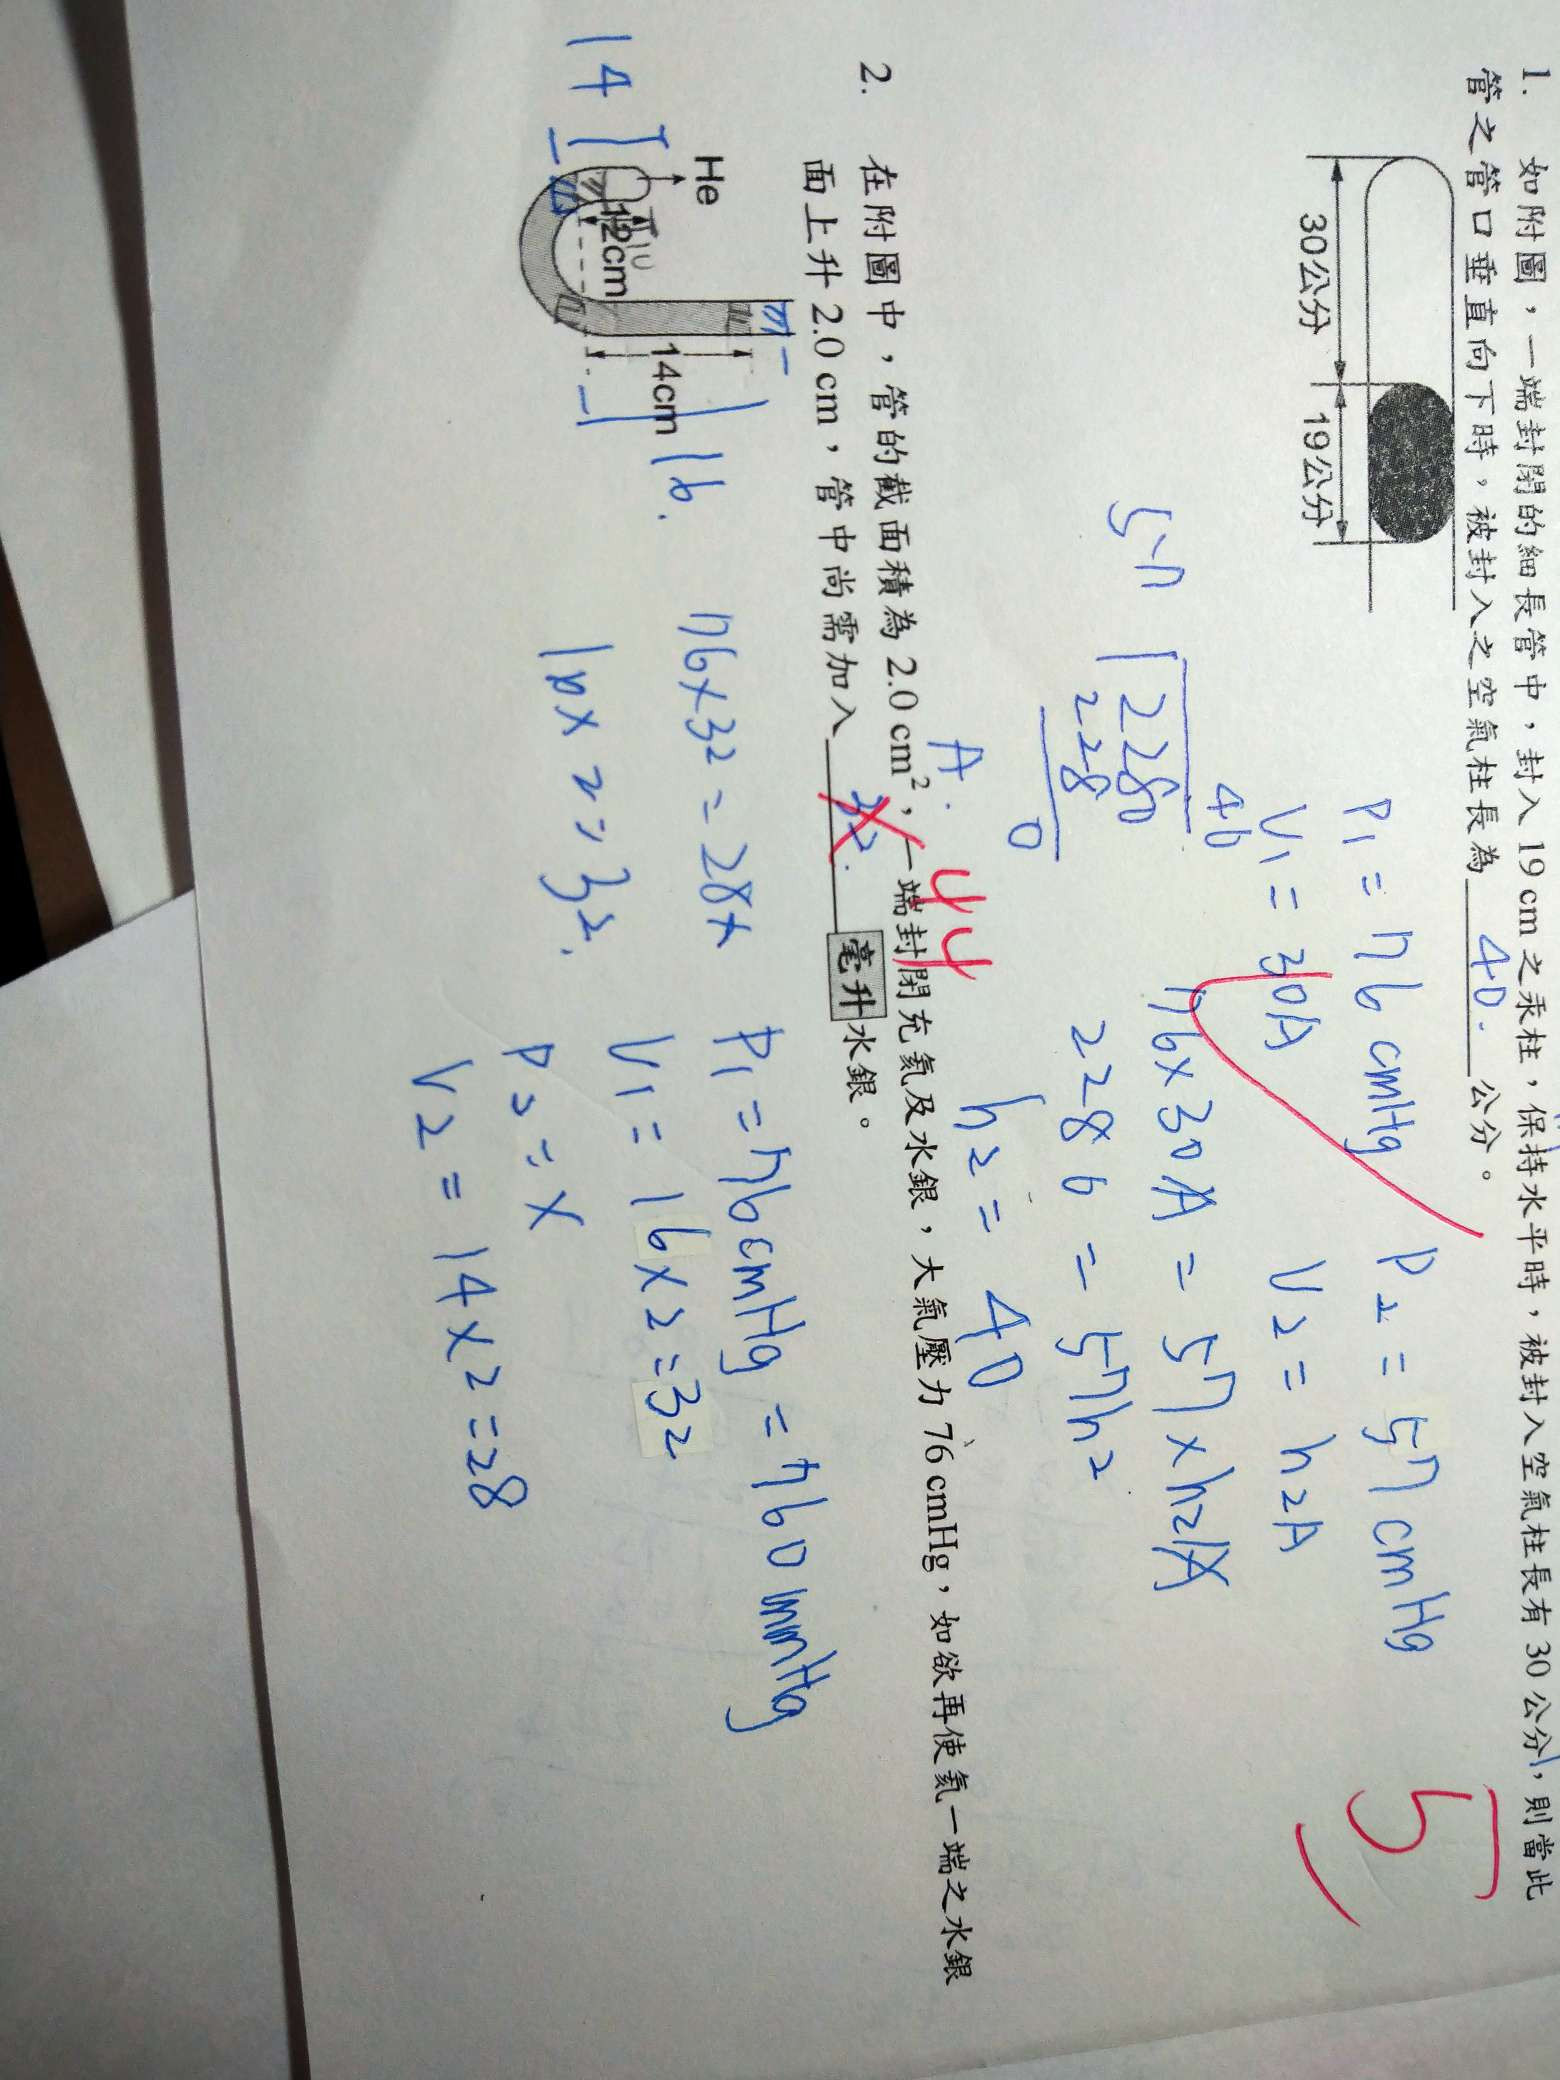 1. 如附圖，一端封閉的細長管中，封入 19 cm 之汞柱，保持水平時，被封入空氣柱長有 30 公分，則當此
管之管口垂直向下時，被封入之空氣柱長為 40. 公分。
30公分 19公分
P1 = 76 cmHg P2 = 57 cmHg
V1 = 30A V2 = h2A
76x30A = 57 x h2A
2280 = 57h2
h2 = 40
40
57 2280
228
0
5
A.
44
2. 在附圖中，管的截面積為 2.0 cm²，一端封閉充氦及水銀，大氣壓力 76 cmHg，如欲再使氦一端之水銀
面上升 2.0 cm，管中尚需加入 32. 毫升水銀。
He
12cm
10
14cm
14
16.
76x32 = 28x
16x2=32.
P1 = 76cmHg = 760mmHg
V1 = 16x2=32
P2 = x
V2 = 14x2=28